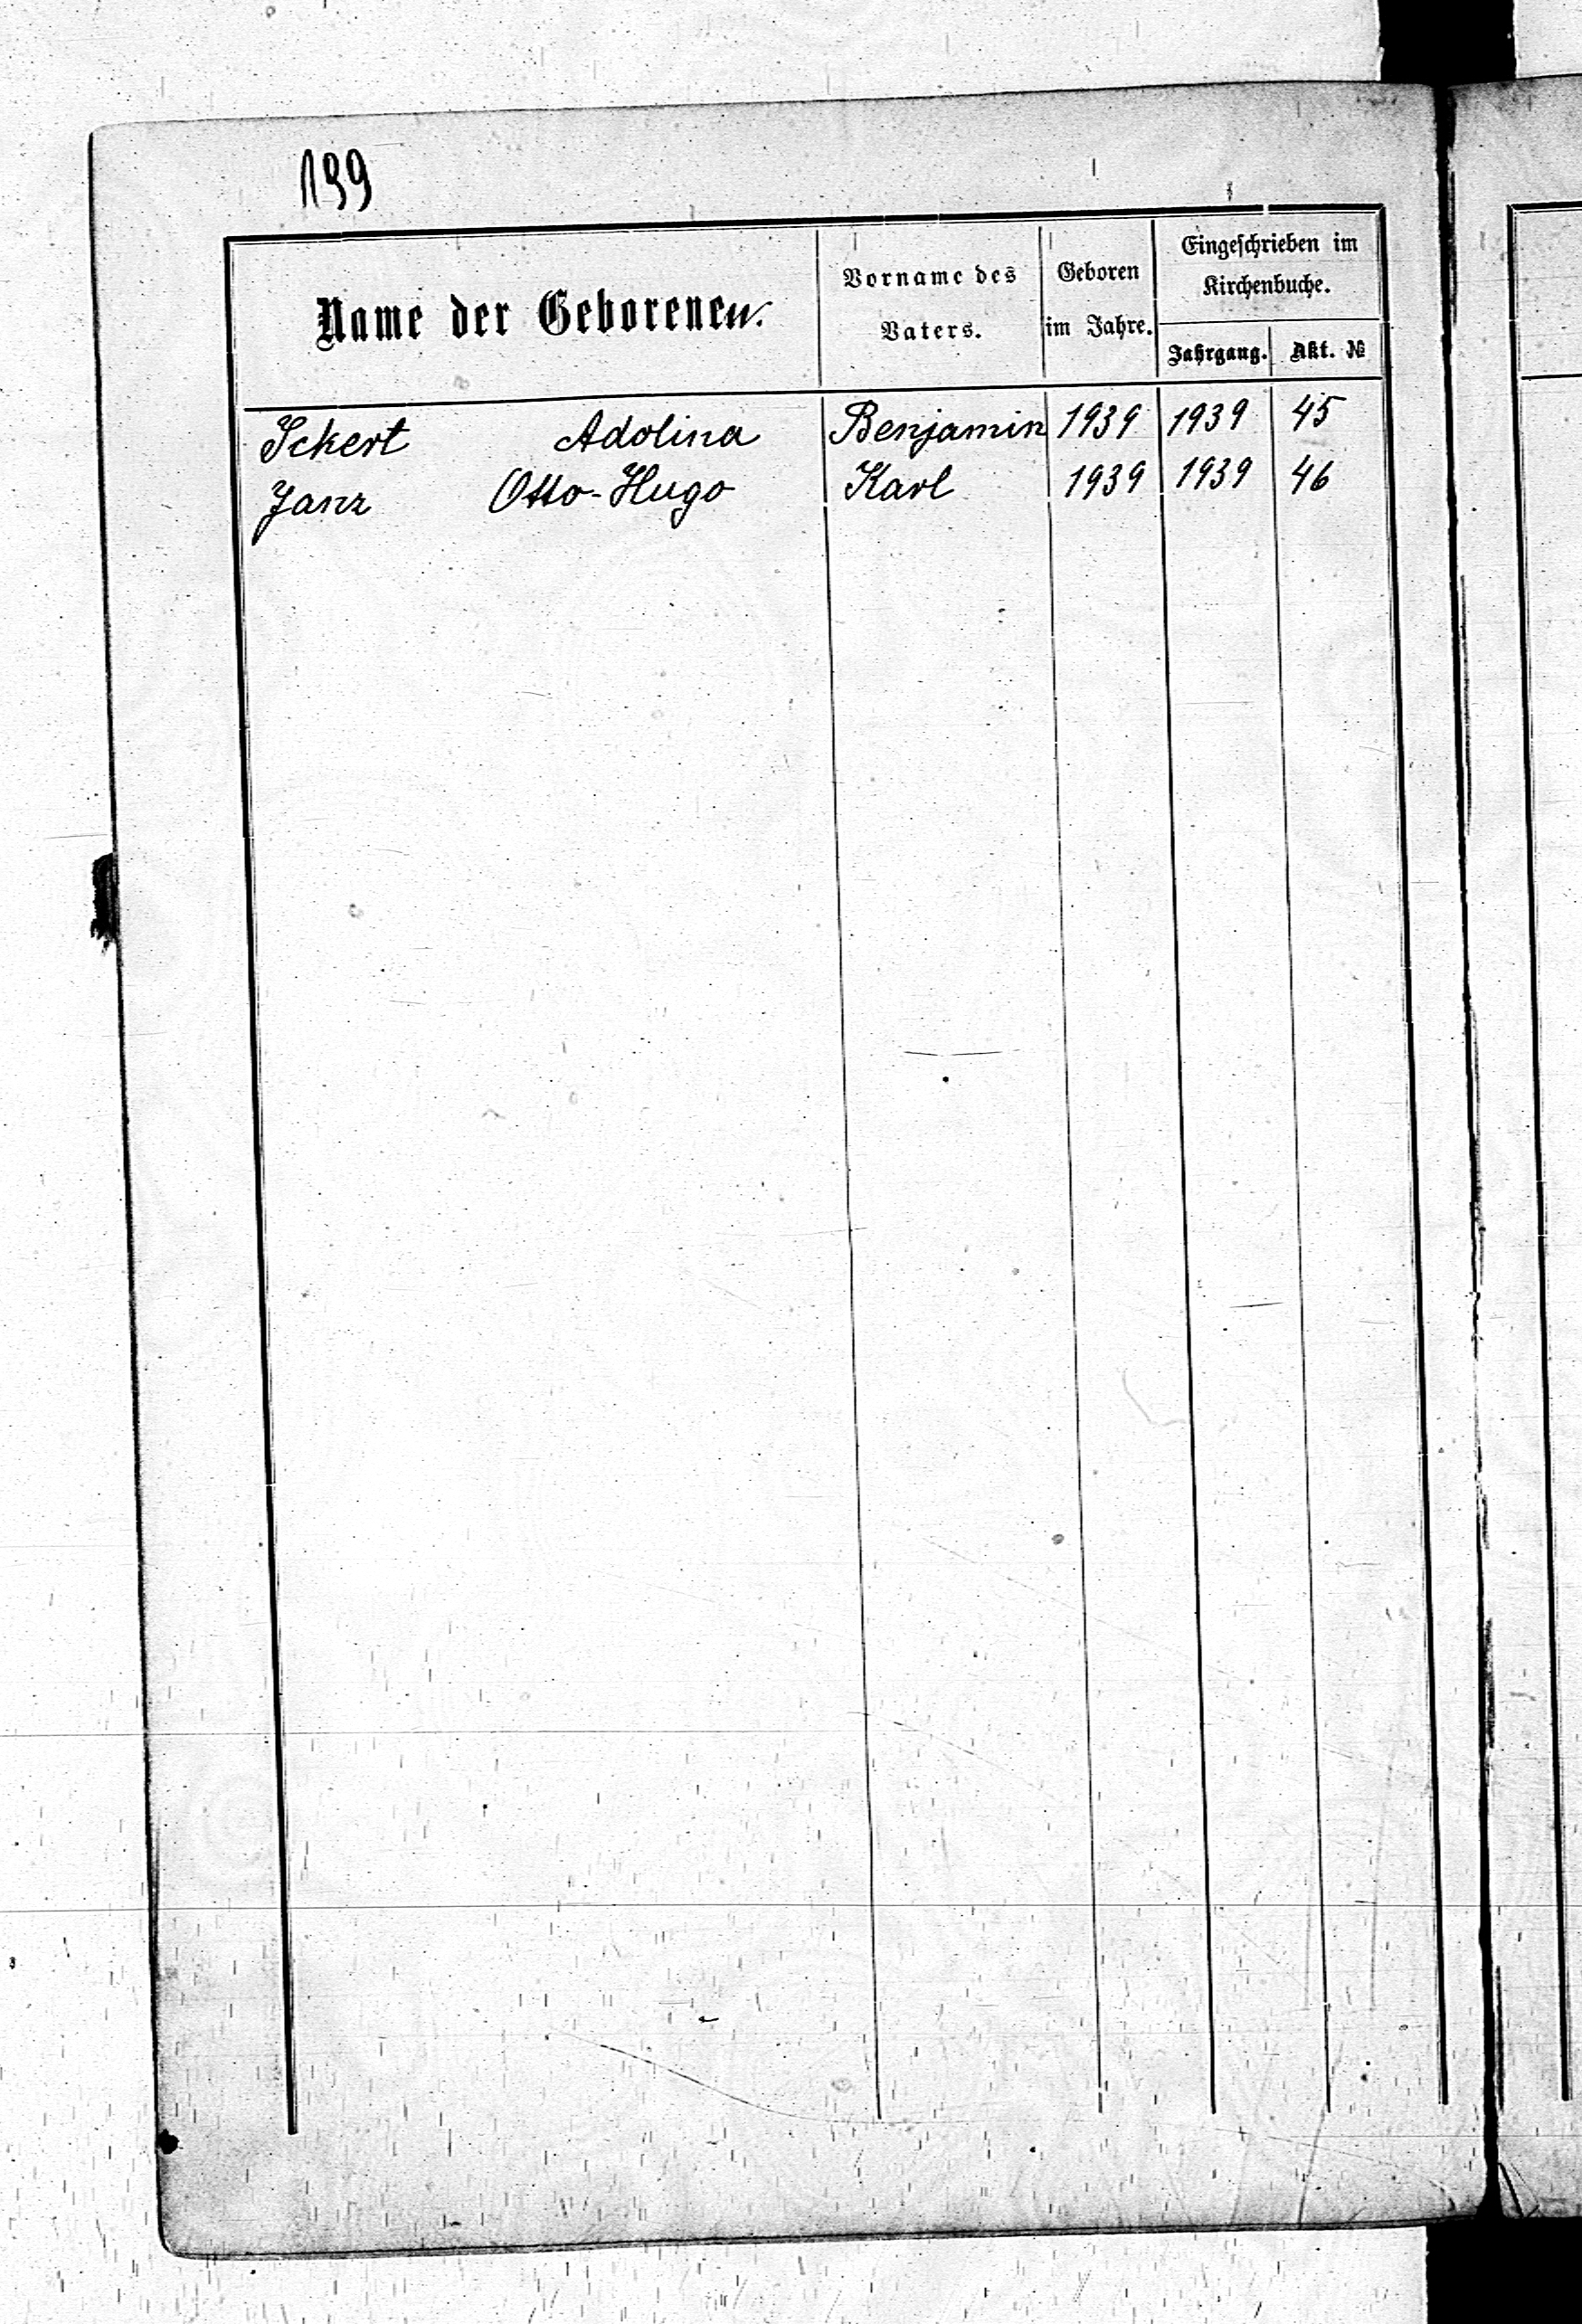 199
Name der Geborenen.
Vorname des
Vaters.
Geboren
im Jahre.
Eingeschrieben im
Kirchenbuche.
Jahrgang.
Akt. №
Ickert Adolina Benjamin 1939 1939 45
Janz Otto-Hugo Karl 1939 1939 46